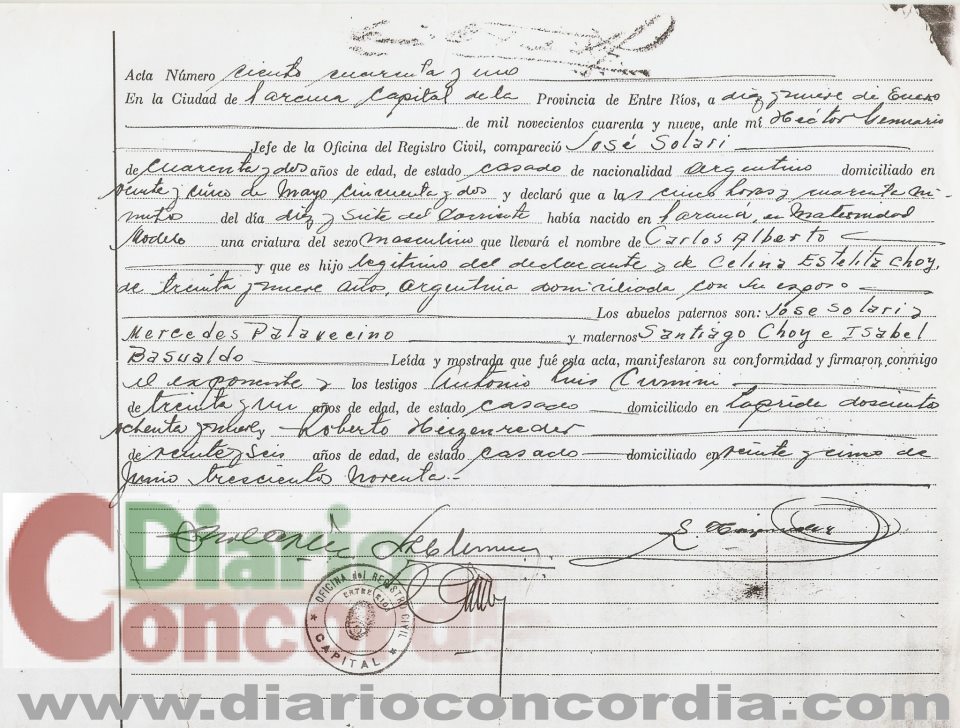 Acta Número ciento cuarenta y uno
En la Ciudad de Paraná Capital de la Provincia de Entre Ríos, a diez y nueve de Enero
de mil novecientos cuarenta y nueve, ante mí Héctor Genuario
Jefe de la Oficina del Registro Civil, compareció José Solari
de cuarenta y dos años de edad, de estado casado de nacionalidad argentino domiciliado en
veinte y cinco de Mayo cincuenta y dos y declaró que a las cinco horas y cuarenta mi-
nutos del día diez y siete del corriente había nacido en Paraná, en Maternidad
Modelo una criatura del sexo masculino que llevará el nombre de Carlos Alberto
y que es hijo legítimo del declarante y de Celina Estelita Choy,
de treinta y nueve años, argentina domiciliada con su esposo
Los abuelos paternos son: José Solari y
Mercedes Palavecino y maternos Santiago Choy e Isabel
Basualdo Leída y mostrada que fué esta acta, manifestaron su conformidad y firmaron conmigo
el exponente y los testigos Antonio Luis
de treinta y un años de edad, de estado casado domiciliado en Laprida doscientos
ochenta y nueve y Roberto Heizenreder
de veinte y seis años de edad, de estado casado domiciliado en veinte y cinco de
Junio trescientos noventa.-
OFICINA del REGISTRO CIVIL
ENTRE RIOS
CAPITAL
Diario
Concordia
www.diarioconcordia.com